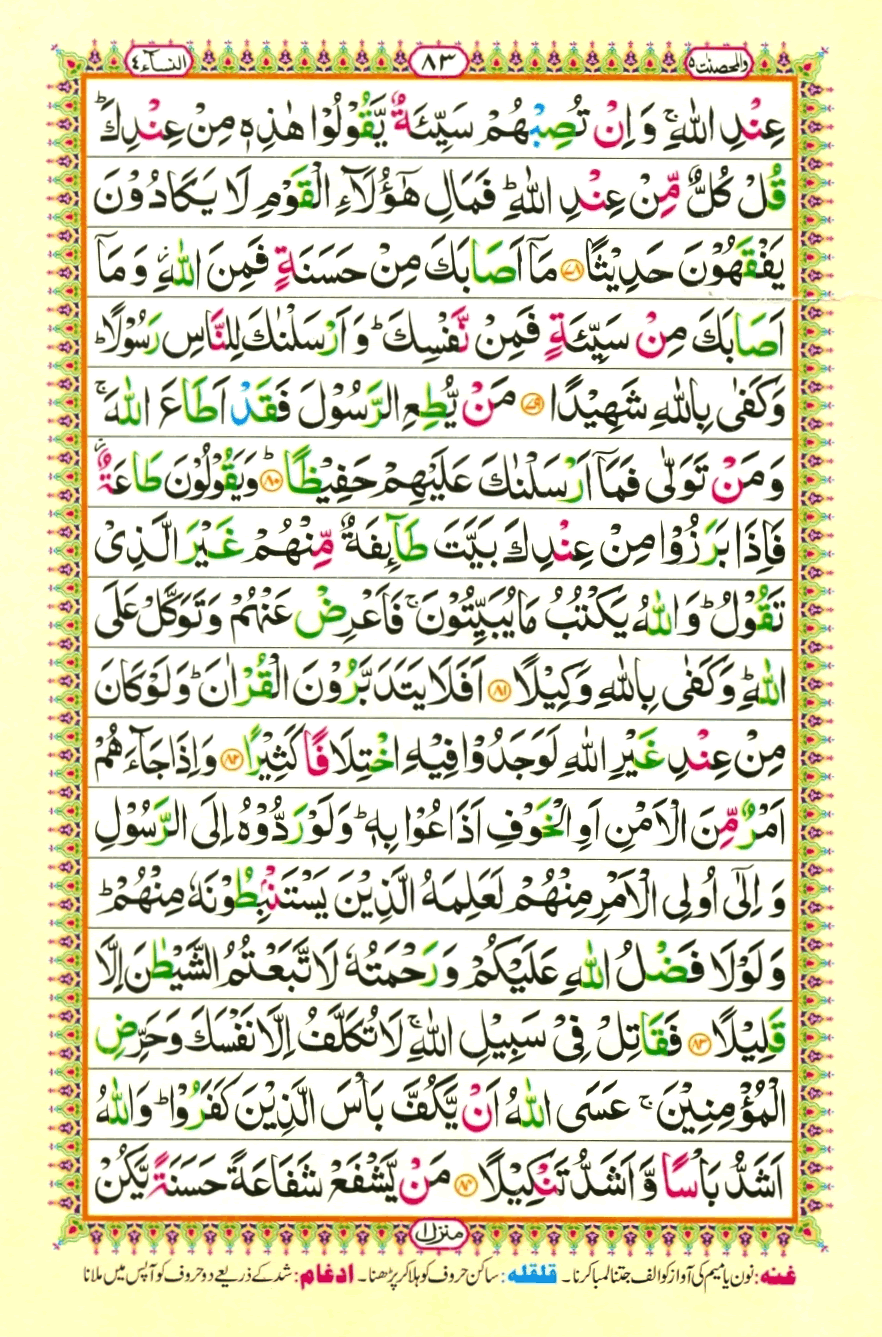 والمحصنت ۵ ۸۳ النسآء ۴
عِنْدِ اللّٰهِ ۚ وَ اِنْ تُصِبْهُمْ سَیِّئَةٌ یَّقُوْلُوْا هٰذِهٖ مِنْ عِنْدِكَ ؕ
قُلْ كُلٌّ مِّنْ عِنْدِ اللّٰهِ ؕ فَمَالِ هٰۤؤُلَآءِ الْقَوْمِ لَا یَكَادُوْنَ
یَفْقَهُوْنَ حَدِیْثًا ﴿۷۸﴾ مَاۤ اَصَابَكَ مِنْ حَسَنَةٍ فَمِنَ اللّٰهِ ؗ وَ مَاۤ
اَصَابَكَ مِنْ سَیِّئَةٍ فَمِنْ نَّفْسِكَ ؕ وَ اَرْسَلْنٰكَ لِلنَّاسِ رَسُوْلًا ؕ
وَ كَفٰی بِاللّٰهِ شَهِیْدًا ﴿۷۹﴾ مَنْ یُّطِعِ الرَّسُوْلَ فَقَدْ اَطَاعَ اللّٰهَ ۚ
وَ مَنْ تَوَلّٰی فَمَاۤ اَرْسَلْنٰكَ عَلَیْهِمْ حَفِیْظًا ﴿۸۰﴾ ؕ وَ یَقُوْلُوْنَ طَاعَةٌ ؗ
فَاِذَا بَرَزُوْا مِنْ عِنْدِكَ بَیَّتَ طَآىِٕفَةٌ مِّنْهُمْ غَیْرَ الَّذِیْ
تَقُوْلُ ؕ وَ اللّٰهُ یَكْتُبُ مَا یُبَیِّتُوْنَ ۚ فَاَعْرِضْ عَنْهُمْ وَ تَوَكَّلْ عَلَی
اللّٰهِ ؕ وَ كَفٰی بِاللّٰهِ وَكِیْلًا ﴿۸۱﴾ اَفَلَا یَتَدَبَّرُوْنَ الْقُرْاٰنَ ؕ وَ لَوْ كَانَ
مِنْ عِنْدِ غَیْرِ اللّٰهِ لَوَجَدُوْا فِیْهِ اخْتِلَافًا كَثِیْرًا ﴿۸۲﴾ وَ اِذَا جَآءَهُمْ
اَمْرٌ مِّنَ الْاَمْنِ اَوِ الْخَوْفِ اَذَاعُوْا بِهٖ ؕ وَ لَوْ رَدُّوْهُ اِلَی الرَّسُوْلِ
وَ اِلٰۤی اُولِی الْاَمْرِ مِنْهُمْ لَعَلِمَهُ الَّذِیْنَ یَسْتَنْۢبِطُوْنَهٗ مِنْهُمْ ؕ
وَ لَوْ لَا فَضْلُ اللّٰهِ عَلَیْكُمْ وَ رَحْمَتُهٗ لَا تَّبَعْتُمُ الشَّیْطٰنَ اِلَّا
قَلِیْلًا ﴿۸۳﴾ فَقَاتِلْ فِیْ سَبِیْلِ اللّٰهِ ۚ لَا تُكَلَّفُ اِلَّا نَفْسَكَ وَ حَرِّضِ
الْمُؤْمِنِیْنَ ۚ عَسَی اللّٰهُ اَنْ یَّكُفَّ بَاْسَ الَّذِیْنَ كَفَرُوْا ؕ وَ اللّٰهُ
اَشَدُّ بَاْسًا وَّ اَشَدُّ تَنْكِیْلًا ﴿۸۴﴾ مَنْ یَّشْفَعْ شَفَاعَةً حَسَنَةً یَّكُنْ
منزل ۱
غنه : نون یا میم کی آواز کو الف جتنا لمبا کرنا ۔ قلقله : ساکن حروف کو ہلا کر پڑھنا ۔ ادغام : شد کے ذریعے دو حروف کو آپس میں ملانا